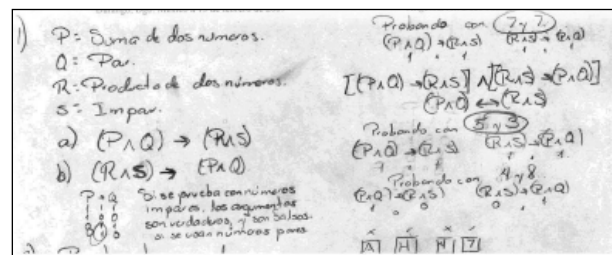 1) P = Suma de dos numeros.
Q = Par.
R = Producto de dos números.
S = Impar.
a) (P∧Q) → (R∧S)
b) (R∧S) → (P∧Q)
P → Q
1 1 1
1 0 0
0 1
0
Si se prueba con números
impares, los argumentos
son verdaderos, y son falsos
si se usan números pares
Probando con 7 y 7
(P∧Q) → (R∧S) (R∧S) → (P∧Q)
1 1 1 1
[(P∧Q) → (R∧S)] ∧ [(R∧S) → (P∧Q)]
(P∧Q) ↔ (R∧S)
Probando con 5 y 3
(P∧Q) → (R∧S) (R∧S) → (P∧Q)
Probando con 4 y 8
(P∧Q) → (R∧S) (R∧S) → (P∧Q)
1 0 0 1
A H 7